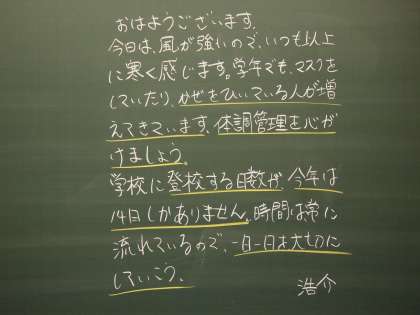 おはようございます。
今日は、風が強いので、いつも以上
に寒く感じます。学年でも、マスクを
していたり、かぜをひいている人が増
えてきています。体調管理を心が
けましょう。
学校に登校する日数が、今年は
14日しかありません。時間は常に
流れているので、一日一日を大切に
していこう。
浩介